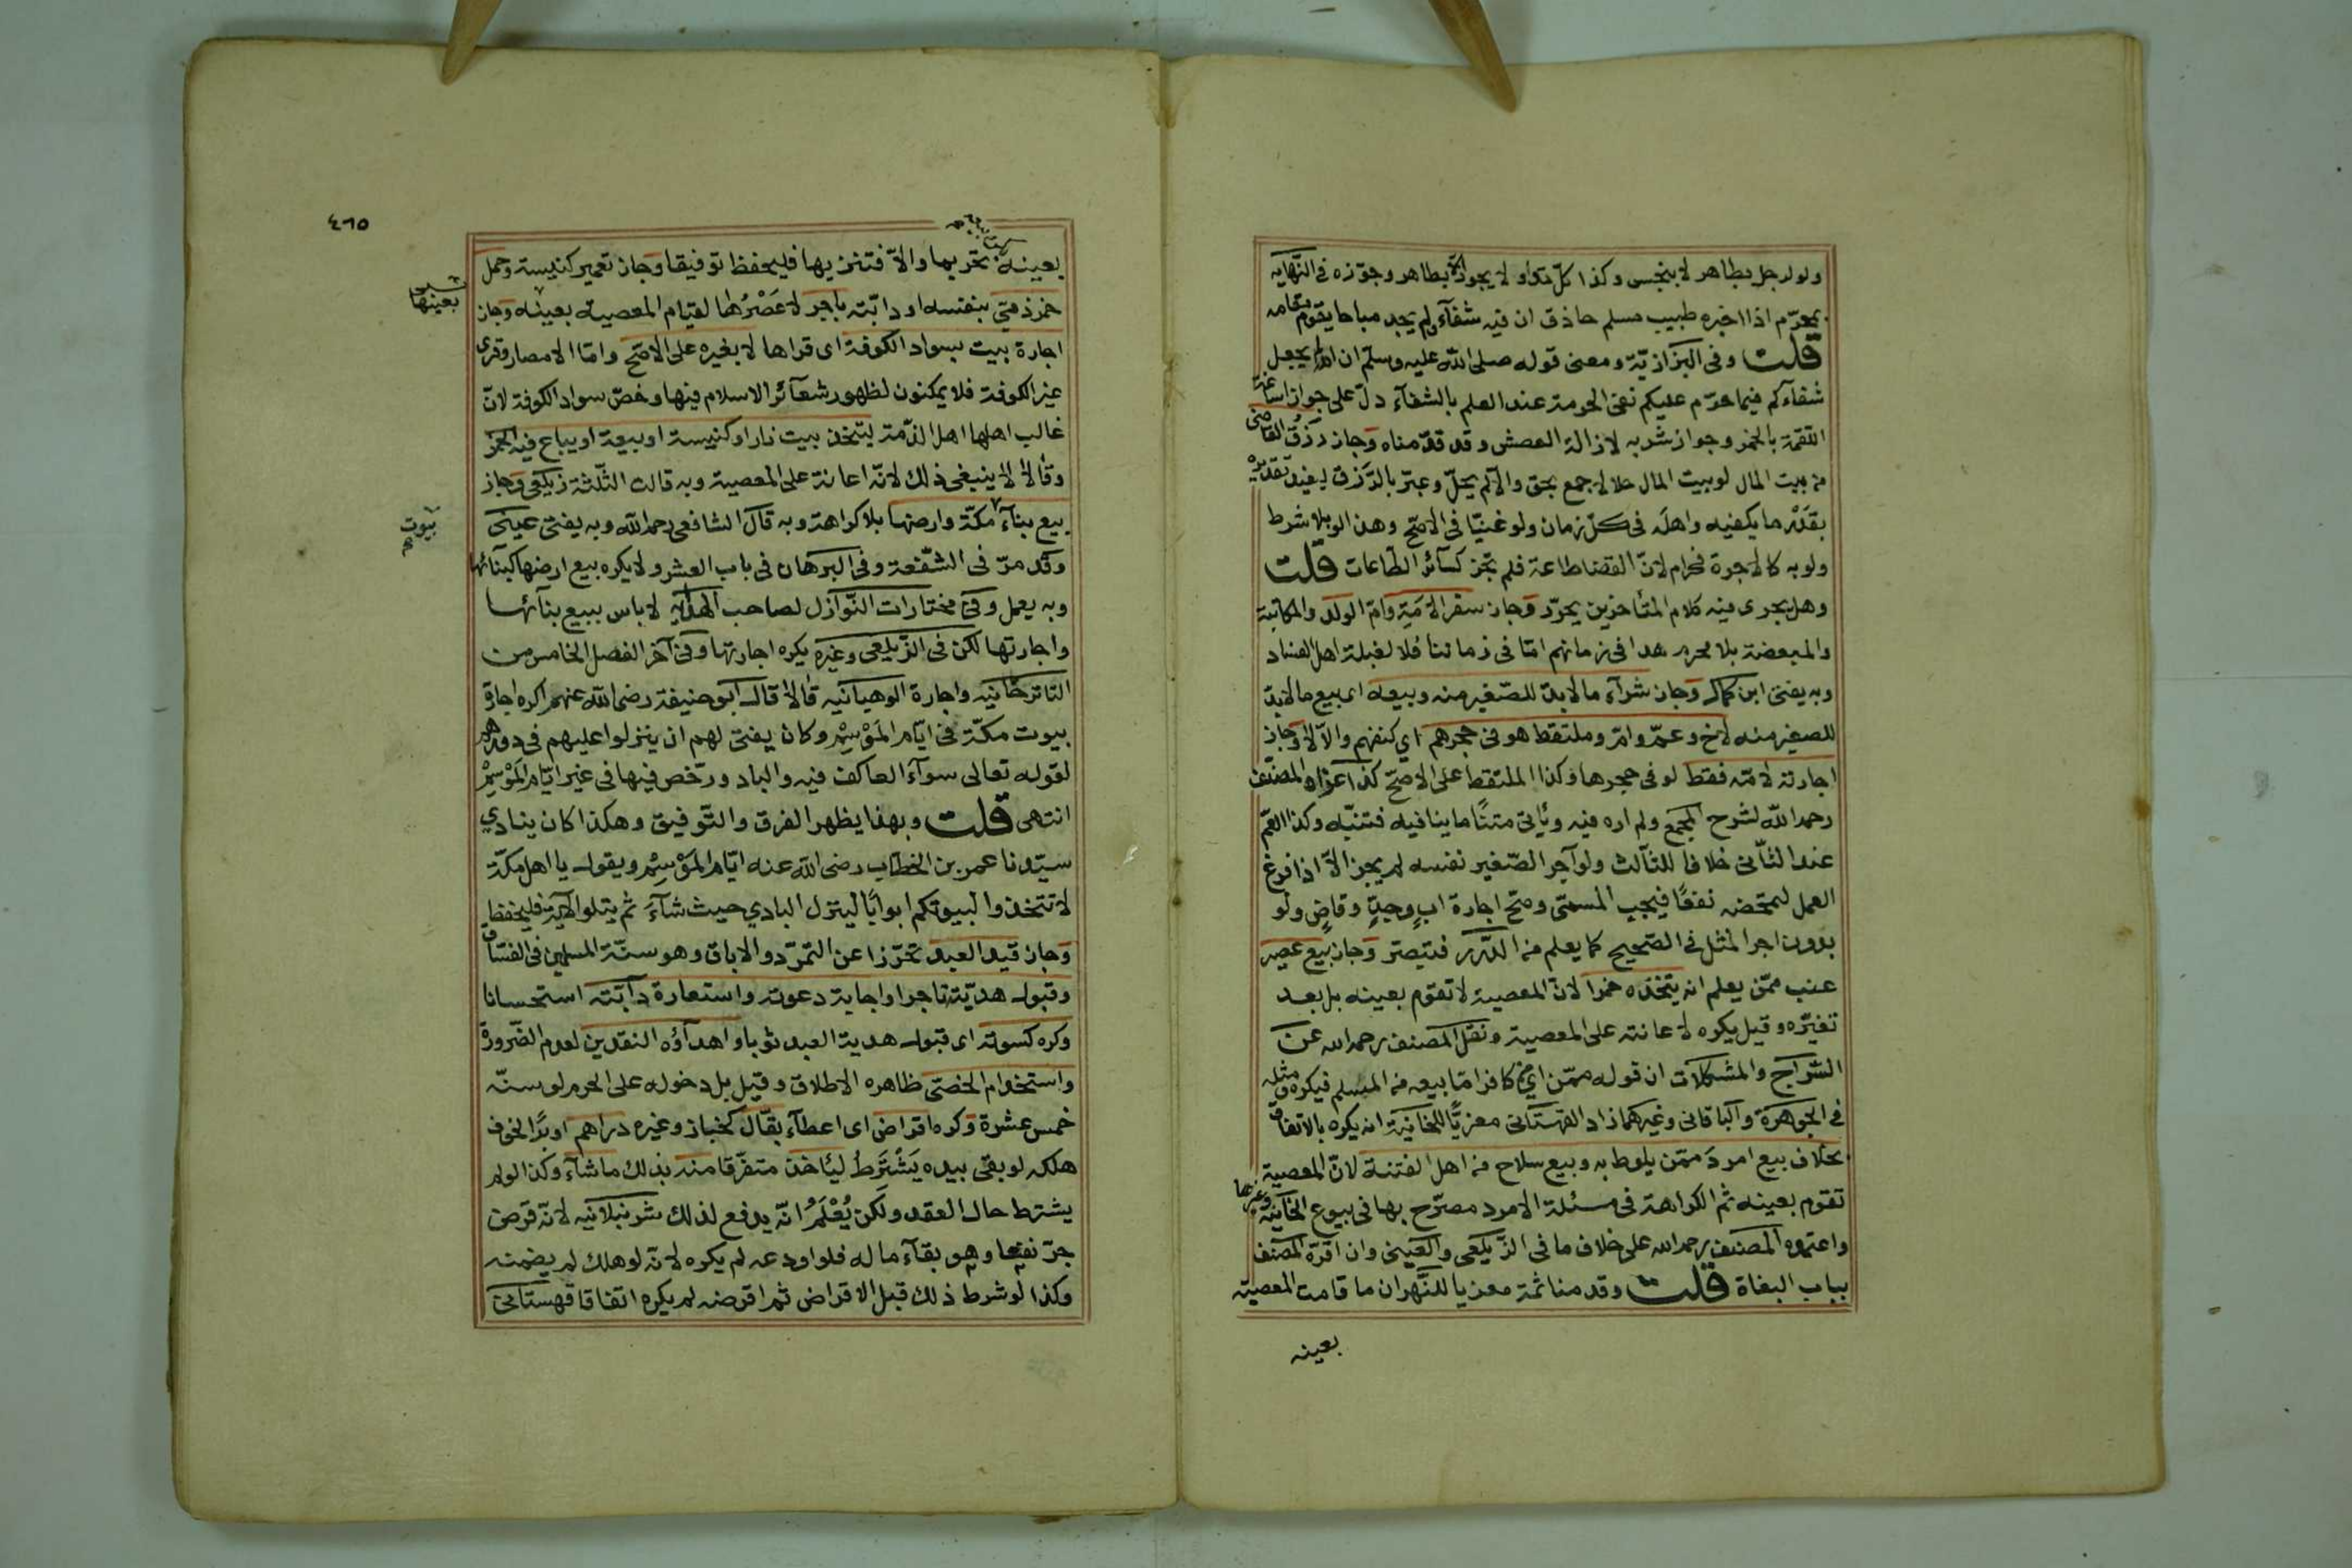 ولو لرجل بطاهر لا بنجس وكذا كل تداو لا يجوز الا بطاهر وجوزه فى النهاية
بمحرم اذا اخبره طبيب مسلم حاذق ان فيه شفآء ولم يجد مباحا يقوم مقامه
قلت وفى البزازية ومعنى قوله صلى الله عليه وسلم ان الله لم يجعل
شفآءكم فيما حرم عليكم نفى الحرمة عند العلم بالشفآء دل على جواز اساغة
اللقمة بالخمر وجواز شربه لازالة العطش وقد قدمناه وجاز رزق القاضى
من بيت المال لو بيت المال حلالا جمع بحق والا لم يحل وعبر بالرزق ليفيد تقديره
بقدر ما يكفيه واهله فى كل زمان ولو غنيا فى الاصح وهذا لو بلا شرط
ولو به كالاجرة فحرام لان القضا طاعة فلم تجز كسآئر الطاعات قلت
وهل يجرى فيه كلام المتأخرين يحرر وجاز سفر الامة وام الولد والمكاتبة
والمبعضة بلا محرم هدا فى زمانهم اما فى زماننا فلا لغلبة اهل الفساد
وبه يفتى ابن كمال وجاز شرآء ما لا بد للصغير منه وبيعه اى بيع ما لا بد
للصغير منه لاخ وعم وام وملتقط هو فى حجرهم اي كنفهم والا لا وجاز
اجارته لامه فقط لو فى حجرها وكذا الملتقط على الاصح كذا عزاه المصنف
رحمه الله لشرح المجمع ولم اره فيه ويأتى متنا ما ينافيه فتنبه وكذا العم
عند الثآنى خلافا للثآلث ولو آجر الصغير نفسه لم يجز الا اذا فرغ
العمل لتمحضه نفعا فيجب المسمى وصح اجارة اب وجد وقاض ولو
بدون اجر المثل فى الصحيح كما يعلم من الدرر فتبصر وجاز بيع عصير
عنب ممن يعلم انه يتخذه خمرا لان المعصية لا تقوم بعينه بل بعد
تغيره وقيل يكره لاعانته على المعصية ونقل المصنف رحمه الله عن
السراج والمشكلات ان قوله ممن اي من كافر اما بيعه من المسلم فيكره ومثله
فى الجوهرة والباقانى وغيرهما زاد القهستانى معزيا للخانية انه يكره بالاتفاق
بخلاف بيع امرد ممن يلوط به وبيع سلاح من اهل الفتنة لان المعصية
تقوم بعينه ثم الكراهة فى مسئلة الامرد مصرح بها فى بيوع الخانية وغيرها
واعتمده المصنف رحمه الله على خلاف ما فى الزيلعى والعينى وان اقره المصنف
بباب البغاة قلت وقدمنا ثمة معزيا للنهر ان ما قامت المعصية
بعينه
٤٦٥
بعينه تحريما والا فتنزيها فليحفظ توفيقا وجاز تعمير كنيسة وحمل
خمر ذمي بنفسه او دابته باجر لا عصرها لقيام المعصية بعينه وجاز
بعينها
اجارة بيت بسواد الكوفة اى قراها لا بغيره على الاصح واما الامصار وقرى
غير الكوفة فلا يمكنون لظهور شعآئر الاسلام فيها وخص سواد الكوفة لان
غالب اهلها اهل الذمة ليتخذ بيت نار او كنيسة او بيعة او يباع فيه الخمر
وقالا لا ينبغى ذلك لانه اعانة على المعصية وبه قالت الثلثة زيلعى وجاز
بيع بنآء مكة وارضها بلا كراهة وبه قال الشافعى رحمه الله وبه يفتى عينى
بيوت
وقد مر فى الشفعة وفى البرهان فى باب العشر ولا يكره بيع ارضها كبنآئها
وبه يعمل وفى مختارات النوازل لصاحب الهداية لا باس ببيع بنآئها
واجارتها لكن فى الزيلعى وغيره يكره اجارتها وفى آخر الفصل الخامس من
التاترخانيه واجارة الوهبانيه قالا قال ابو حنيفة رضى الله عنهم اكره اجارة
بيوت مكة فى ايام الموسم وكان يفتى لهم ان ينزلوا عليهم فى دورهم
لقوله تعالى سوآء العاكف فيه والباد ورخص فيها فى غير ايام الموسم
انتهى قلت وبهذا يظهر الفرق والتوفيق وهكذا كان ينادي
سيدنا عمر بن الخطاب رضى الله عنه ايام الموسم ويقول يا اهل مكة
لا تتخذوا لبيوتكم ابوابا لينزل البادي حيث شآء ثم يتلو الآية فليحفظ
وجاز قيد العبد تحرزا عن التمرد والاباق وهو سنة المسلمين فى الفساق
وقبول هديته تاجرا واجابة دعوته واستعارة دآبته استحسانا
وكره كسوته اى قبول هدية العبد ثوبا واهدآؤه النقدين لعدم الضرورة
واستخدام الخصى ظاهره الاطلاق وقيل بل دخوله على الحرم لو سنه
خمس عشرة وكره اقراض اى اعطآء بقال كخباز وغيره دراهم او برا لخوف
هلكه لو بقى بيده يشترط ليأخذ متفرقا منه بذلك ما شآء وكذا لو لم
يشترط حال العقد ولكن يعلم انه يدفع لذلك شرنبلانيه لانه قرض
جر نفعا وهو بقآء ماله فلو اودعه لم يكره لانه لو هلك لم يضمنه
وكذا لو شرط ذلك قبل الاقراض ثم اقرضه لم يكره اتفاقا قهستانى